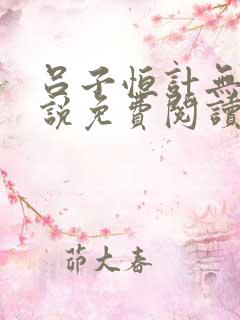 呂子恒計無
說免費閱讀
茆大春